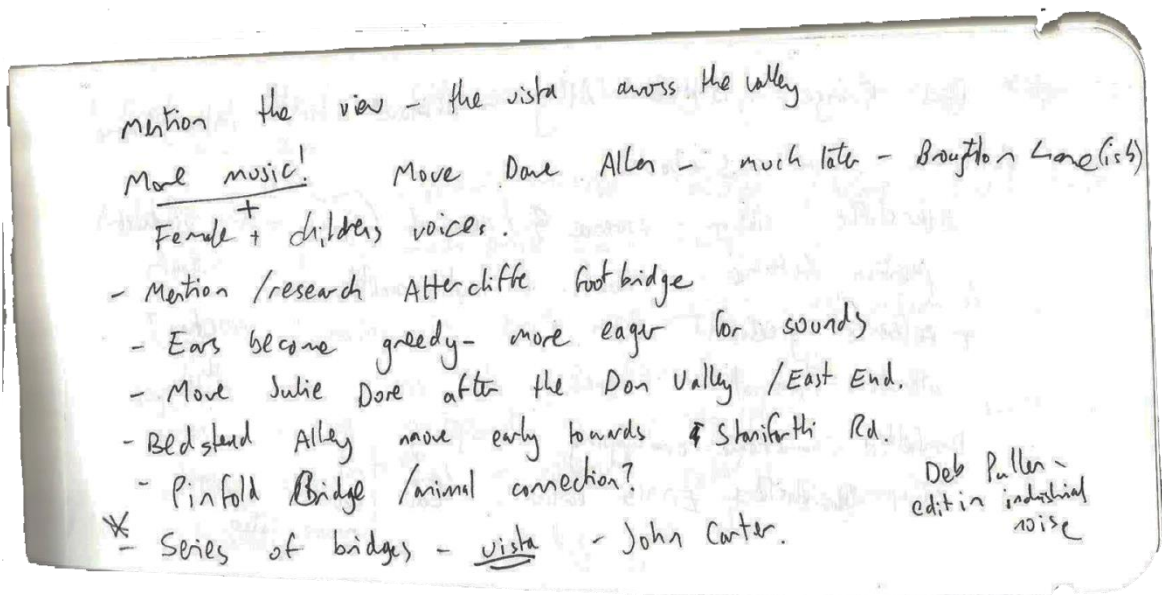 Mention the view - the vista across the valley
More music! Move Dave Allen - much later - Broughton Lane (ish)
+
Female + childrens voices
- Mention / research Attercliffe footbridge
- Ears become greedy - more eager for sounds
- Move Julie Dore after the Don Valley / East End.
- Bedstead Alley move early towards Staniforth Rd.
- Pinfold Bridge / animal connection?
Deb Pullen -
edit in industrial
noise
* - Series of bridges - vista - John Carter.